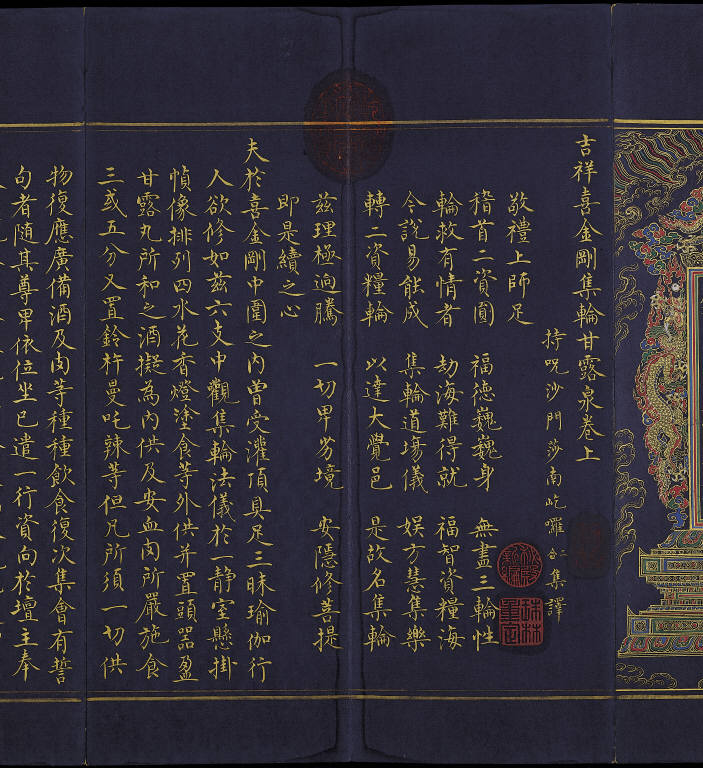 吉祥喜金剛集輪甘露泉卷上
持呪沙門莎南屹囉 集譯
敬禮上師足
稽首二資圓 福德巍巍身 無盡三輪性
輪救有情者 劫海難得就 福智資糧海
今說易能成 集輪道場儀 娛方慧集樂
轉二資糧輪 以達大覺邑 是故名集輪
茲理極迥騰 一切卑劣境 安隱修菩提
即是續之心
夫於喜金剛中圍之內曾受灌頂具足三昧瑜伽行
人欲修如茲六支中觀集輪法儀於一静室懸掛
幀像排列四水花香燈塗食等外供并置頭器盈
甘露丸所和之酒擬為內供及安血肉所嚴施食
三或五分又置鈴杵曼吒辣等但凡所須一切供
物復應廣備酒及肉等種種飲食復次集會有誓
句者隨其尊卑依位坐已遣一行資向於壇主奉